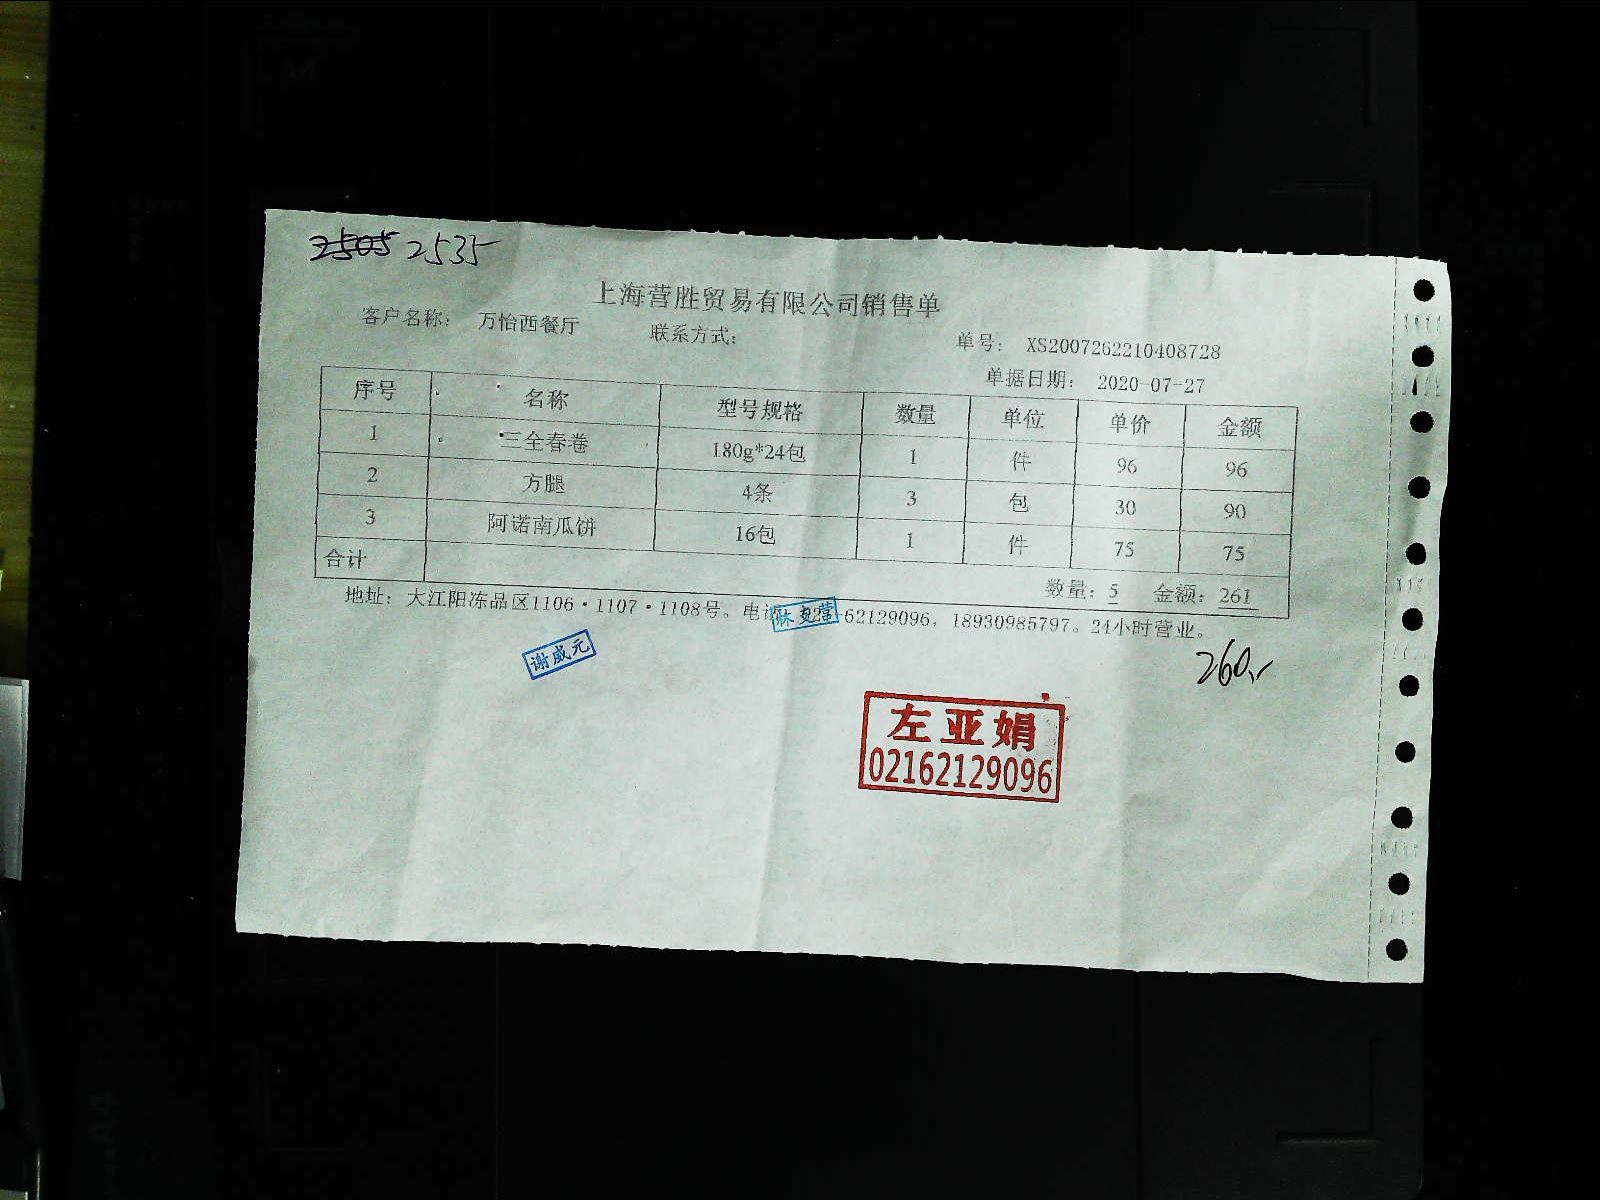 2505 2535
上海营胜贸易有限公司销售单
客户名称： 万怡西餐厅 联系方式： 单号： XS2007262210408728
单据日期： 2020-07-27
序号 名称 型号规格 数量 单位 单价 金额
1 三全春卷 180g*24包 1 件 96 96
2 方腿 4条 3 包 30 90
3 阿诺南瓜饼 16包 1 件 75 75
合计 数量：5 金额：261
地址：大江阳冻品区1106·1107·1108号。电话 62129096，18930985797。24小时营业。
260
谢威元
左亚娟
02162129096
A4